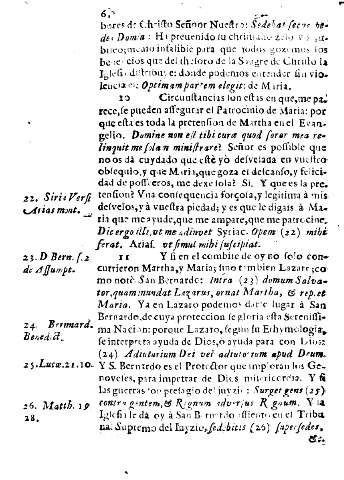 6.
bores de Christo Señor Nuestro: Sedebat secus pe-
des Domini: Ha preuenido su christiano zelo v pu-
blico, medio infalible para que todos gozemos los
beneficios que del thesoro de la Sangre de Christo la
Iglesia distribuie: donde podemos entender sin vio-
lencia el: Optimam partem elegit: de Maria.
10 Circunstancias son estas en que, me pa-
rece, se pueden assegurar el Patrocinio de Maria: por
que esta es toda la pretension de Martha en el Euan-
gelio. Domine non est tibi curæ quod soror mea re-
linquit me solam ministrare? Señor es possible que
no os dà cuydado que estè yò desvelada en vuestro
obsequio, y que Maria, que goza el descanso, y felici-
dad de posseeros, me dexe sola? Si. Y que es la pre-
tension? Vna consequencia forçosa, y legitima à mis
desvelos, y à vuestra piedad; y es que le digais à Ma-
ria que me ayude, que me ampare, que me patrocine.
Dic ergo illi, vt me adiuvet Syriac. Opem (22) mihi
ferat. Arias. vt simul mihi suscipiat.
22. Siric Versi
Arias mont.
11 Y si en el combite de oy no solo con-
currieron Martha, y Maria; sino tambien Lazaro; co-
mo notè San Bernardo: Intra (23) domum Salva-
tor, quam mundat Lazarus, ornat Martha, & replet
Maria. Ya en Lazaro podemos darle lugar à San
Bernardo, de cuya proteccion se gloria esta Serenissi-
ma Nacion: porque Lazaro, segun su Ethymologia,
se interpreta ayuda de Dios, o ayuda para con Dios:
(24) Adiutorium Dei vel adiutorum apud Deum.
Y S. Bernardo es el Protector que imploran los Ge-
noveses, para impetrar de Dios misericordia. Y si
las guerras son presagio del juyzio: Surget gens (25)
contra gentem, & Regnum adversus Regnum. Y la
Iglesia le dà oy à San Bernardo assiento en el Tribu-
na. Supremo del Juyzio, sedebitis (26) super sedes.
&c.
23. D Bern. s. 2
de Assumpt.
24. Bernnard.
Benedict.
25. Lucæ. 21. 10.
26. Matth. 19
28.